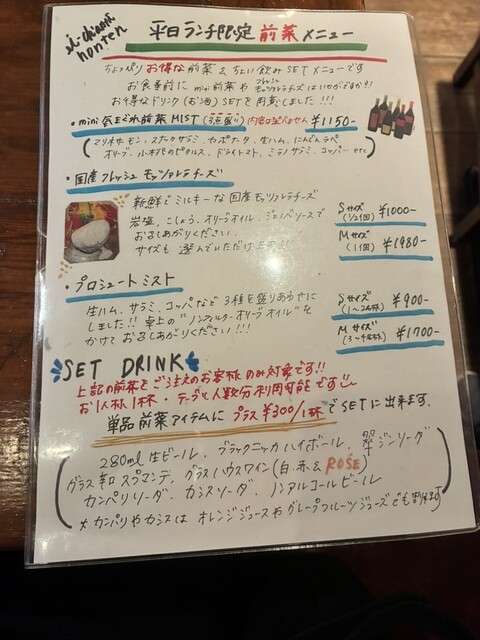 i-chianti
honten
平日ランチ限定 前菜メニュー
ちょっぴりお得な前菜&ちょい飲みSETメニューです
お食事前に mini前菜やフレッシュモッツァレラチーズはいかがですか!!
お得なドリンク(お酒)SETを用意しました!!!
・mini気まぐれ前菜MIST(3品盛り) 内容は選べません ¥1150-
(マリネサーモン、スナックサラミ、カポナータ、生ハム、にんじんラペ
オリーブ、小木村のピクルス、ドライトマト、ミラノサラミ、コッパー etc)
・国産フレッシュモッツァレラチーズ
新鮮でミルキーな国産モッツァレラチーズ
岩塩、こしょう、オリーブオイル、ジェノベソースで
お召しあがりください。
サイズも選んでいただけます!!
Sサイズ(1/2個) ¥1000-
Mサイズ(1個) ¥1980-
・プロシュートミスト
生ハム、サラミ、コッパなど3種を盛りあわせに
しました!! 卓上の"ノンフィルターオリーブオイル"を
かけてお召しあがりください!!!
Sサイズ(1~2名様) ¥900-
Mサイズ(3~4名様) ¥1700-
SET DRINK
上記の前菜をご注文のお客様のみ対象です!!
お1人様1杯・テーブル人数分利用可能です
単品前菜アイテムにプラス¥300/1杯でSETに出来ます。
(280ml生ビール、ブラックニッカハイボール、翠ジンソーダ
グラス辛口スプマンテ、グラスハウスワイン(白、赤&ROSÉ)
カンパリソーダ、カシスソーダ、ノンアルコールビール
*カンパリやカシスはオレンジジュースやグレープフルーツジュースでも割れます)